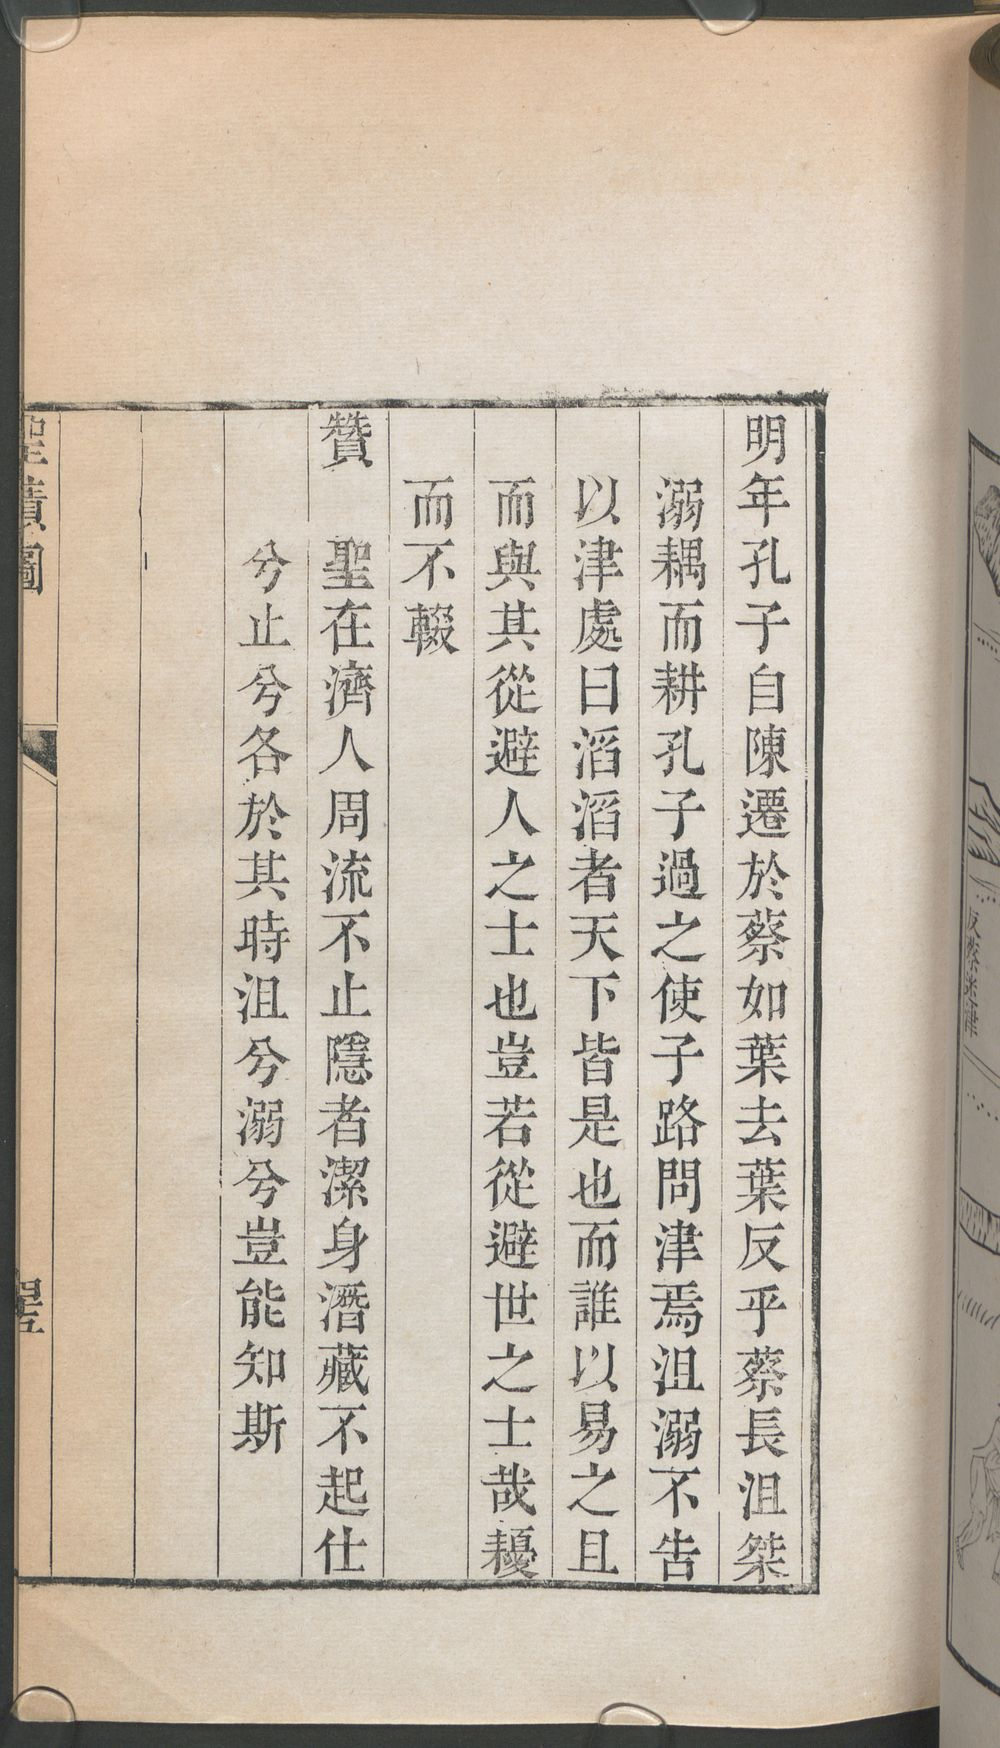 明年孔子自陳遷於蔡如葉去葉反乎蔡長沮桀
溺耦而耕孔子過之使子路問津焉沮溺不告
以津處曰滔滔者天下皆是也而誰以易之且
而與其從避人之士也豈若從避世之士哉耰
而不輟
贊 聖在濟人周流不止隱者潔身潛藏不起仕
兮止兮各於其時沮兮溺兮豈能知斯
聖蹟圖
反蔡迷津